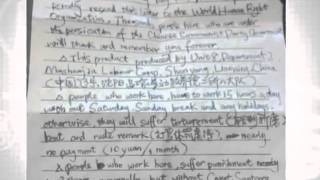 kindly resend this letter to the World Human Right
Organization. Thousands people here who are under
the persicution of the Chinese Communist Party Government
will thank and remember you forever.
This product produced by Unit 8, Department 2,
Masanjia Labour Camp, Shenyang, Liaoning, China
(中国,辽宁,沈阳,马三家
people who work here, have to work 15 hours a day
with out Saturday, Sunday break and any holidays,
otherwise, they will suffer torturement
beat and rude remark nearly
no payment (10 yuan/1 month)
people who work here, suffer punishment nearly
1~3 years averagely, but without Court Sentence